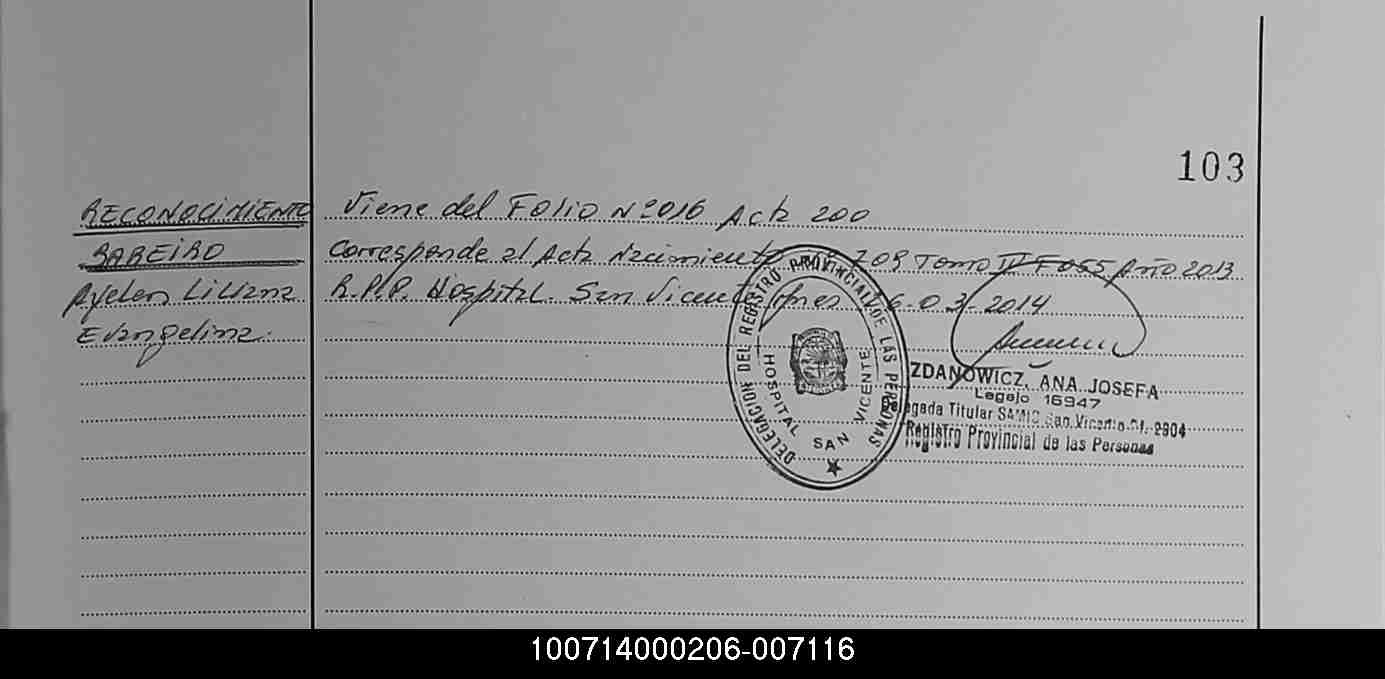 103
RECONOCIMIENTO
BAREIRO
Ayelen Liliana
Evangelina.
Viene del Folio Nº 016 Acta 200
Corresponde al Acta Nacimiento 709 Tomo IV Fo 55 Año 2013
R.P.P. Hospital. San Vicente 6-03-2014
DELEGACION DEL REGISTRO PROVINCIAL DE LAS PERSONAS
HOSPITAL SAN VICENTE
ZDANOWICZ, ANA JOSEFA
Legajo 16947
Delegada Titular SAMIC San Vicente 2904
Registro Provincial de las Personas
100714000206-007116